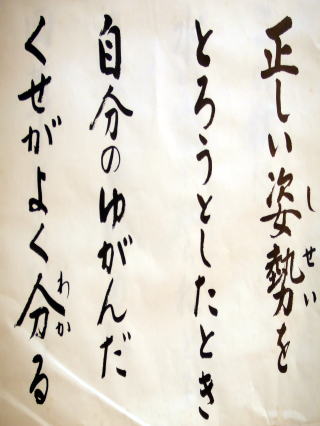 正しい姿勢を
しせい
とろうとしたとき
自分のゆがんだ
くせがよく分る
わか